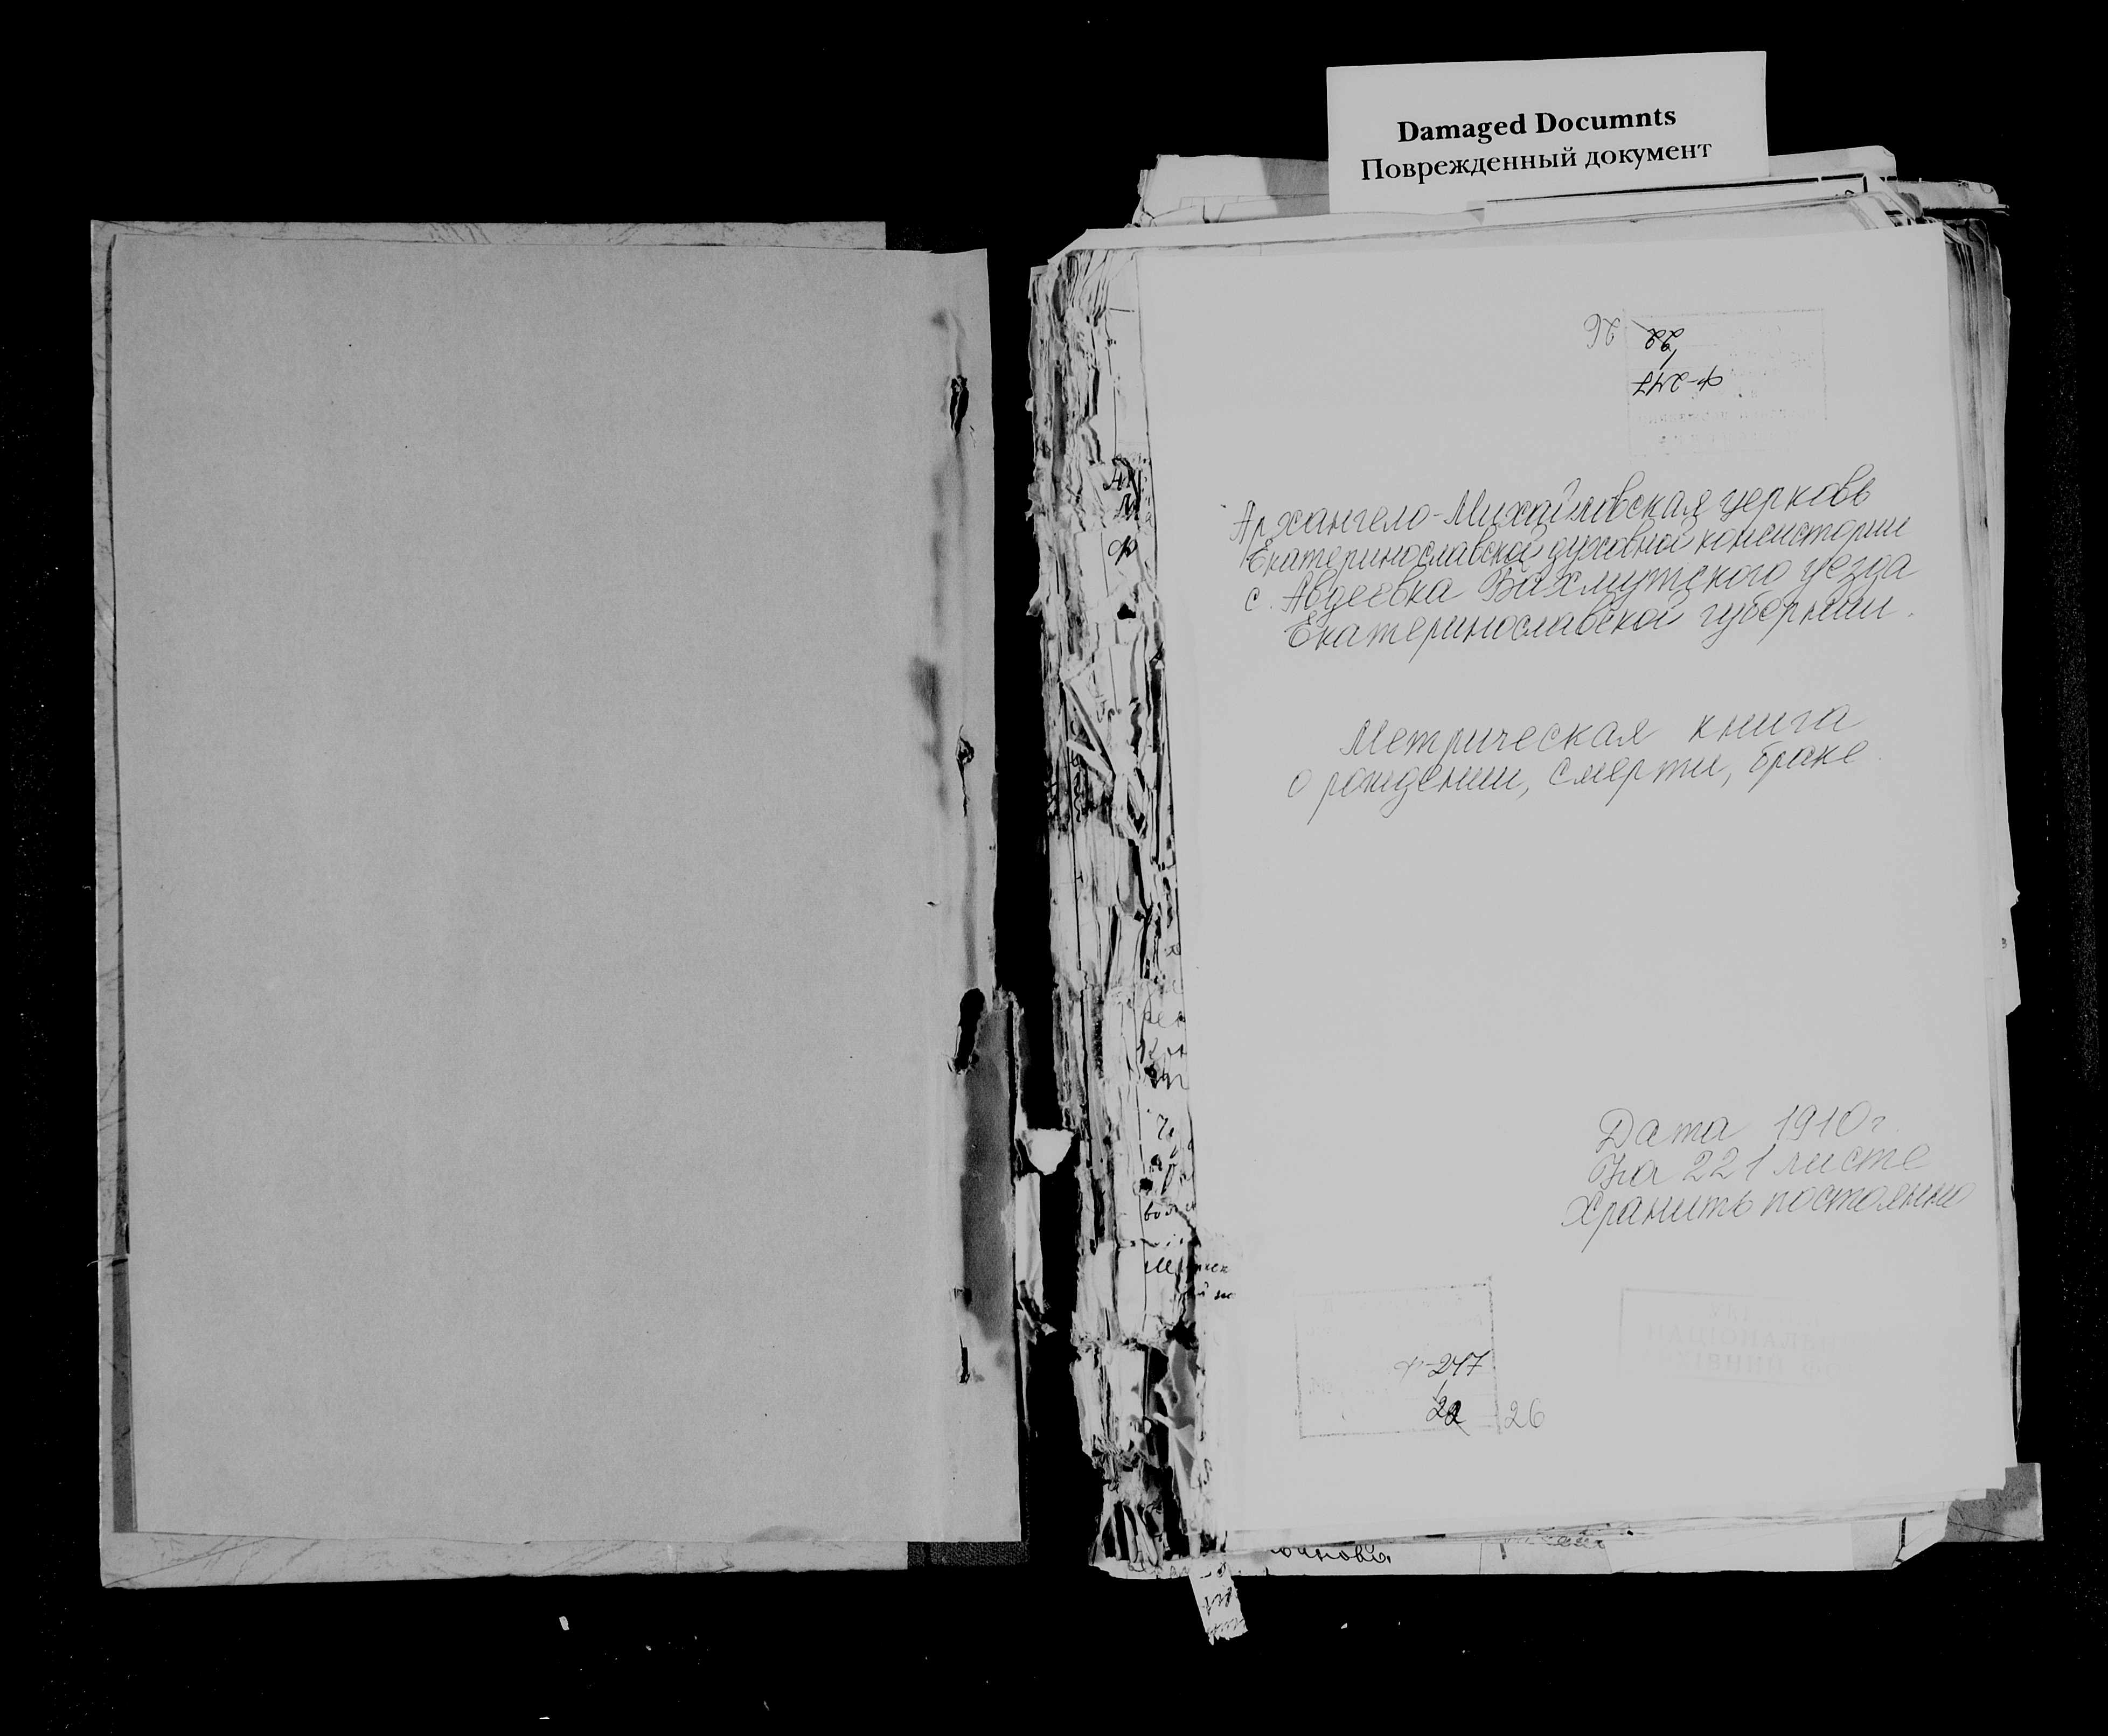 Damaged Documnts
Поврежденный документ
26 22
ф-247
Архангело-Михайловская церковь
Екатеринославской духовной консистории
с. Авдеевка Бахмутского уезда
Екатеринославской губернии.
Метрическая книга
о рождении, смерти, браке.
Дата 1910г.
На 221 листе
Хранить постоянно
ф-247
22 26